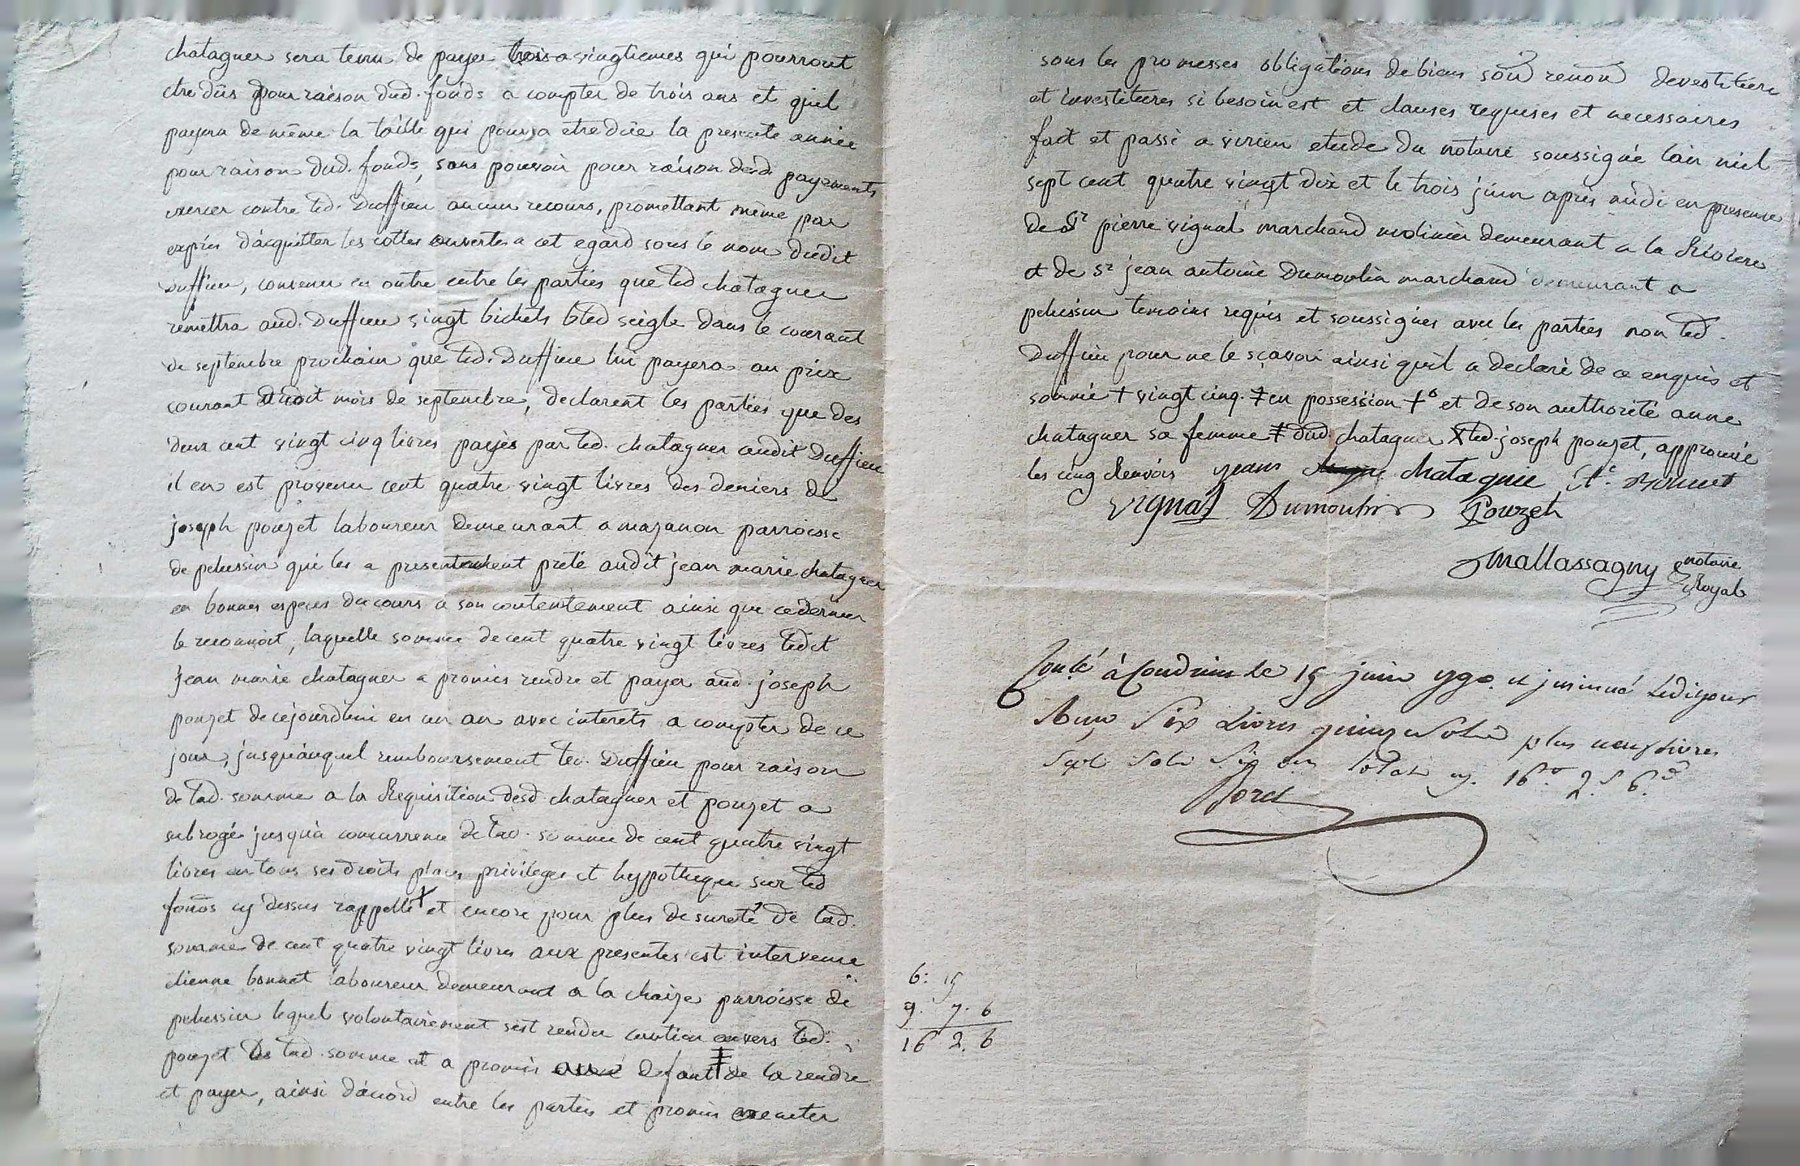 chatagner sera tenu de payer les vingtiemes qui pourront
etre dûs pour raison dud. fonds a compter de trois ans et quil
payera de même la taille qui pourra etre dûe la presente année
pour raison dud. fonds, sans pouvoir pour raison desd payements
exercer contre led. Duffieu aucun recours, promettant même par
exprès d'acquitter les cottes ouvertes a cet egard sous le nom dudit
Duffieu, convenu en outre entre les parties que led chatagner
remettra aud. Duffieu vingt bichets bled seigle dans le courant
de septembre prochain que led. Duffieu lui payera au prix
courant dudit mois de septembre, declarent les parties que des
deux cent vingt cinq livres payés par led. chatagner audit Duffieu
il en est provenu cent quatre vingt livres des deniers de
joseph pouzet laboureur demeurant a mazanon parroisse
de pelussin qui les a presentement prêté audit jean marie chatagner
en bonnes especes du cours a son contentement ainsi que ce dernier
le reconnoit, laquelle somme de cent quatre vingt livres ledit
jean marie chatagner a promis rendre et payer aud. joseph
pouzet de cejourdhui en un an avec interets a compter de ce
jour, jusqu'auquel remboursement led. Duffieu pour raison
de lad. somme a la Requisition desd chatagner et pouzet a
subrogé jusqu'à concurrence de lad. somme de cent quatre vingt
livres en tous ses droits places privileges et hypotheque sur led
fonds cy dessus rappellé + et encore pour plus de sureté de lad.
somme de cent quatre vingt livres aux presentes est intervenu
etienne bonnet laboureur demeurant a la chaize parroisse de
pelussin lequel volontairement sest rendu caution envers led.
pouzet de lad. somme et a promis a defaut ‡ de la rendre
et payer, ainsi d'acord entre les parties et promis executer
sous les promesses obligations de biens soum renon devestiture
et investitures si besoin est et clauses requises et necessaires
fait et passé a virieu etude du notaire soussigné l'an mil
sept cent quatre vingt dix et le trois juin après midi en presence
de Sr pierre vignal marchand molinier demeurant a la Riviere
et de Sr jean antoine Dumoulin marchand demeurant a
pelussin temoins requis et soussignés avec les parties non led.
Duffieu pour ne le sçavoir ainsi quil a declaré de ce enquis et
sommé + vingt cinq. ‡ en possession +o et de son authorité anne
chatagner sa femme ‡ dud. chatagner X led. joseph pouzet, approuvé
les cinq Renvois jean chatagnie Et. Bonnet
Vignal Dumoulin Pouzet
Mallassagny notaire
Royal
Conlé à Condrieu le 15 juin 1790. et insinué ledit jour
Reçu Six Livres quinze sols plus neuf livres
Sept Sols Six den totale cy. 16lt 2 s 6.d
Foret
6: 15
9. 7. 6
16 2. 6